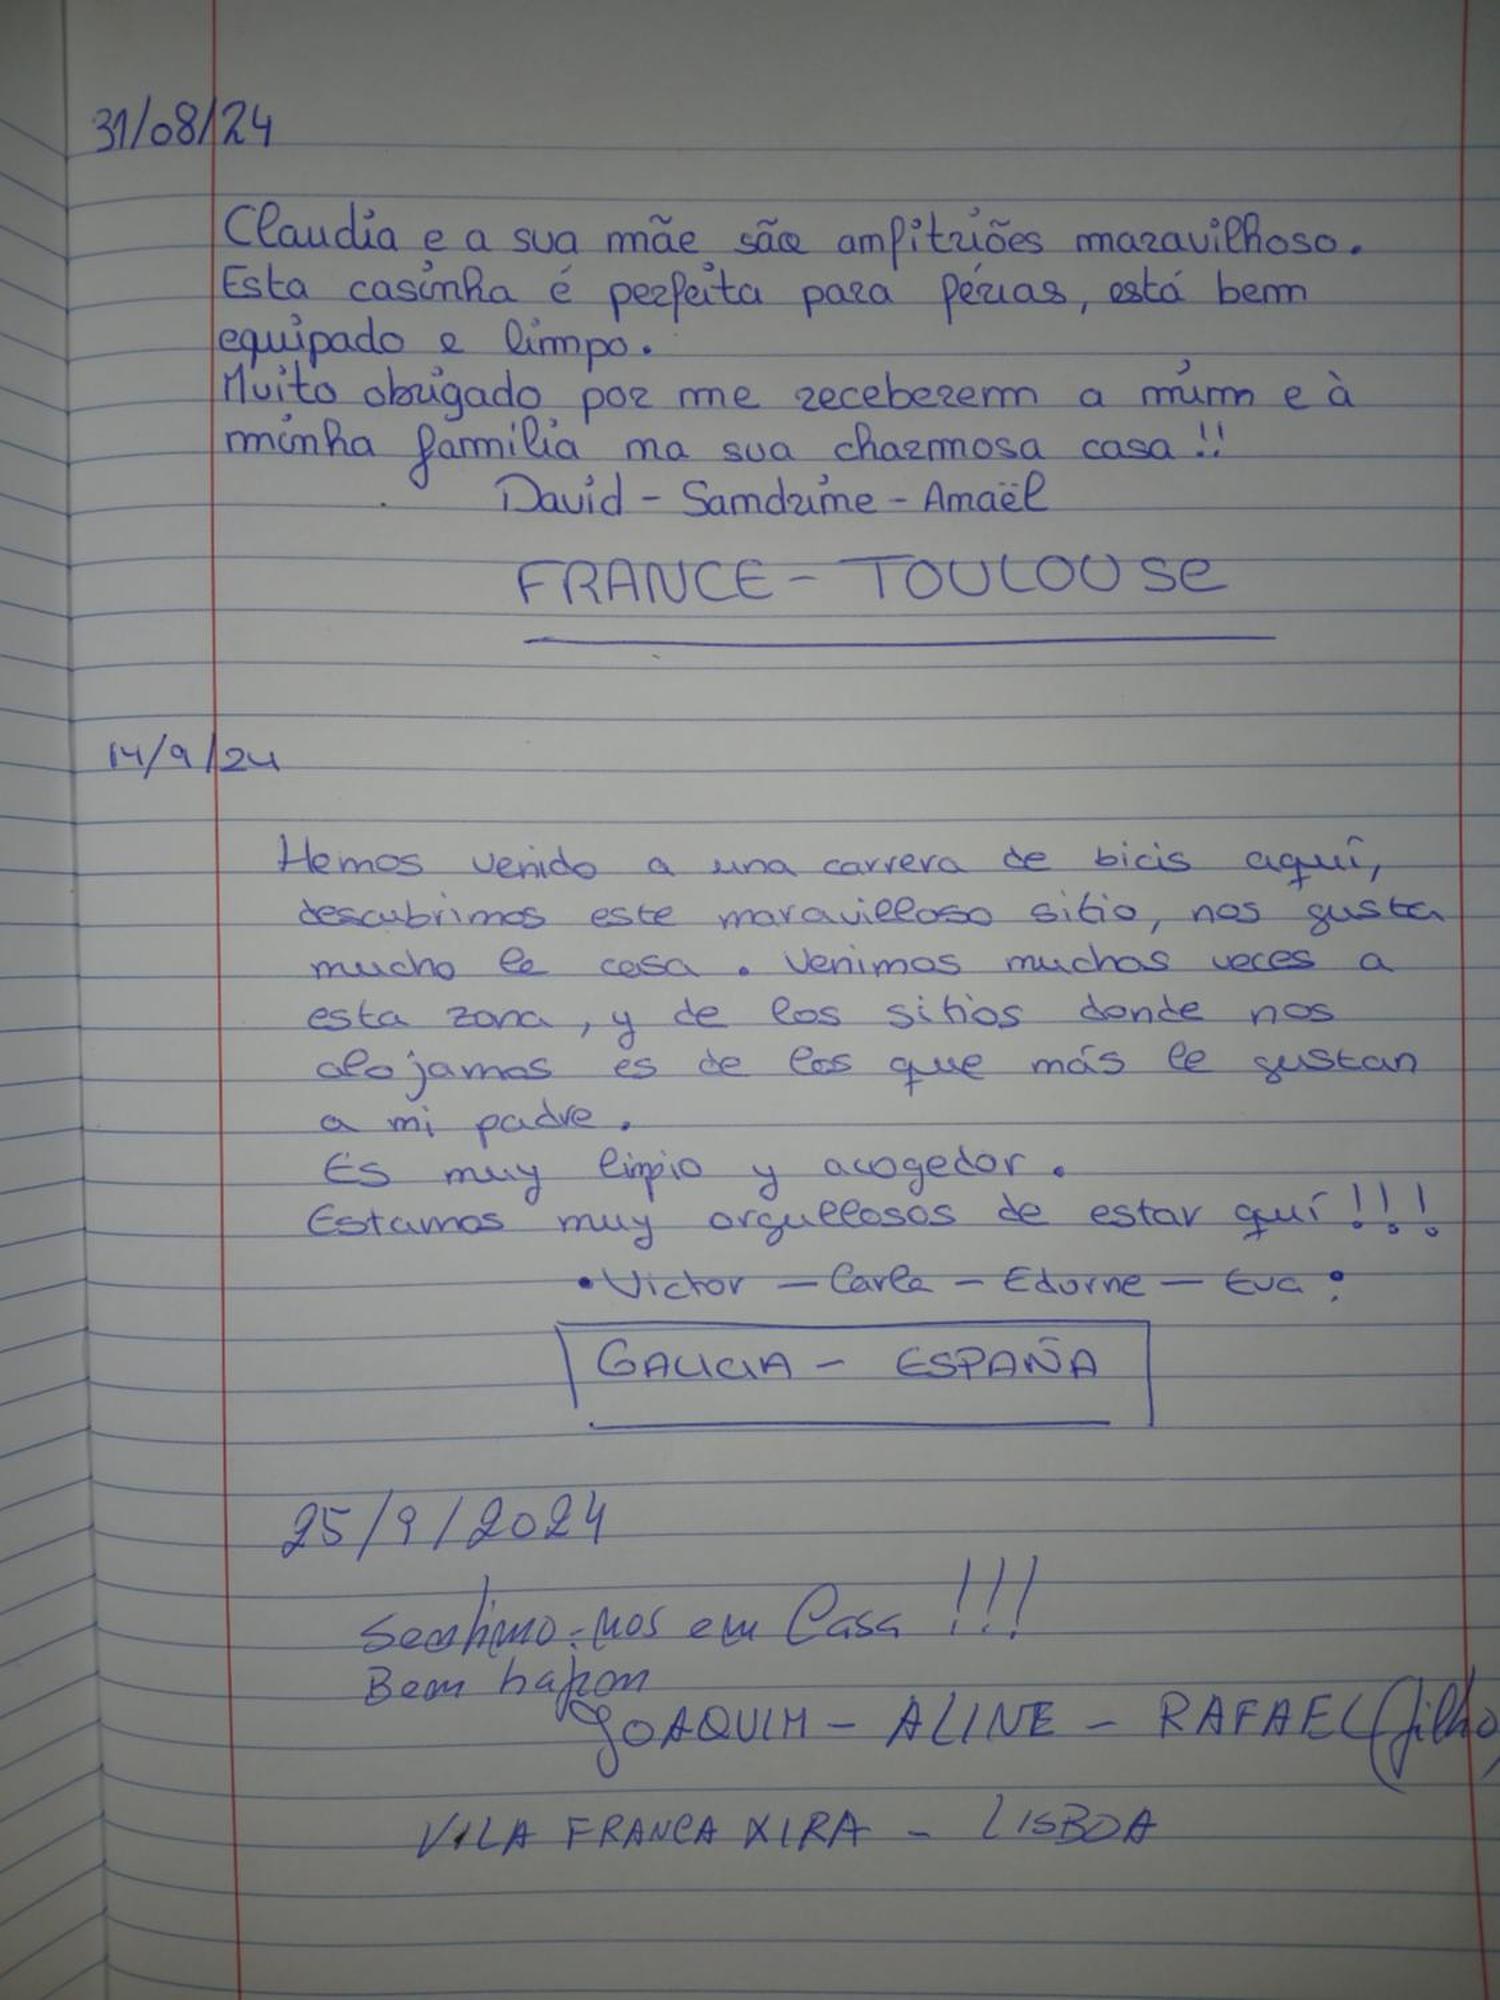 31/08/24
Claudia e a sua mãe são anfitriões maravilhoso.
Esta casinha é perfeita para férias, está bem
equipado e limpo.
Muito obrigado por me receberem a mim e à
minha família na sua charmosa casa !!
David - Sandrine - Amaël
FRANCE - TOULOUSe
14/9/24
Hemos venido a una carrera de bicis aquí,
descubrimos este maravilloso sitio, nos gusta
mucho la casa. Venimos muchas veces a
esta zona, y de los sitios donde nos
alojamos es de los que más le gustan
a mi padre.
Es muy limpio y acogedor.
Estamos muy orgullosos de estar quí !!!
• Victor - Carla - Edurne - Eva :
GALICIA - ESPAÑA
25/9/2024
Sentimo-nos em Casa !!!
Bem
JOAQUIM - ALINE - RAFAEL (filho)
VILA FRANCA XIRA - LISBOA